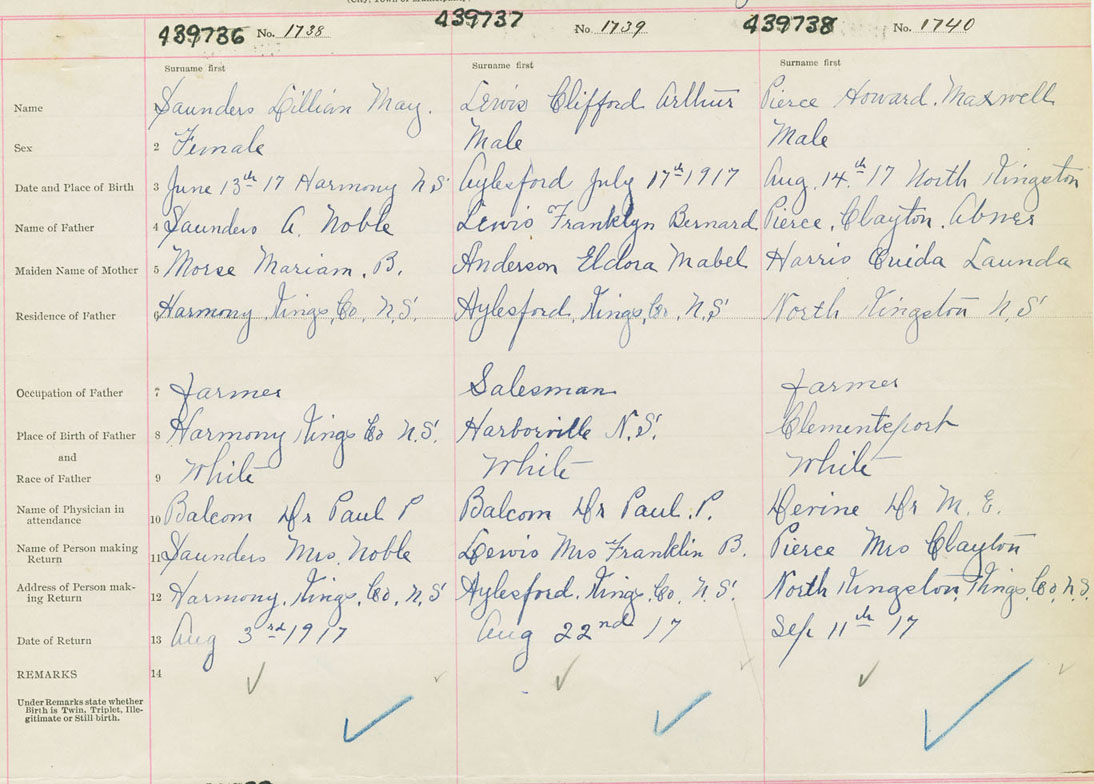 439736 No. 1738 439737 No. 1739 439738 No. 1740
Surname first Surname first Surname first
Name 1 Saunders Lillian May. Lewis Clifford Arthur Pierce Howard. Maxwell
Sex 2 Female Male Male
Date and Place of Birth 3 June 13th 17 Harmony N.S. Aylesford July 17th 1917 Aug. 14th 17 North Kingston
Name of Father 4 Saunders A. Noble Lewis Franklyn Bernard Pierce, Clayton. Abner
Maiden Name of Mother 5 Morse Mariam. B. Anderson Eldora Mabel Harris Launda
Residence of Father 6 Harmony, Kings, Co, N.S. Aylesford, Kings, Co, N.S North Kingston N,S
Occupation of Father 7 farmer Salesman farmer
Place of Birth of Father 8 Harmony Kings Co N.S. Harborville N.S. Clementsport
and
Race of Father 9 White White White
Name of Physician in
attendance 10 Balcom Dr Paul P Balcom Dr Paul. P. Devine Dr M. E.
Name of Person making
Return 11 Saunders Mrs. Noble Lewis Mrs Franklin B. Pierce Mrs Clayton
Address of Person mak-
ing Return 12 Harmony, Kings, Co, N,S Aylesford. Kings, Co, N.S. North Kingston, Kings, Co, N.S.
Date of Return 13 Aug 3rd 1917 Aug 22nd 17 Sep 11th 17
REMARKS 14
Under Remarks state whether
Birth is Twin, Triplet, Ille-
gitimate or Still birth.